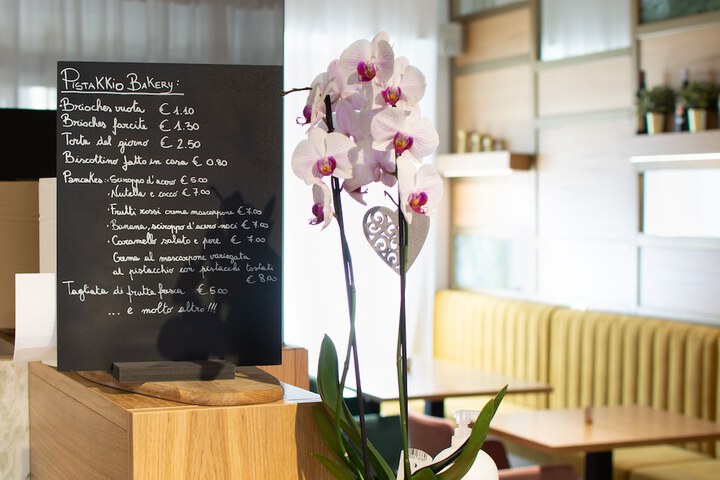 PISTAKKIO BAKERY:
Brioches vuota € 1.10
Brioches farcite € 1.30
Torta del giorno € 2.50
Biscottino fatto in casa € 0.80
Pancakes: Sciroppo d'acero € 5.00
Nutella e cocco € 7.00
Frutti rossi crema mascarpone € 7.00
Banana, sciroppo d'acero noci € 7.00
Caramello salato e pere € 7.00
Crema al mascarpone variegata
al pistacchio con pistacchi tostati
€ 8.00
Tagliata di frutta fresca € 5.00
... e molto altro!!!